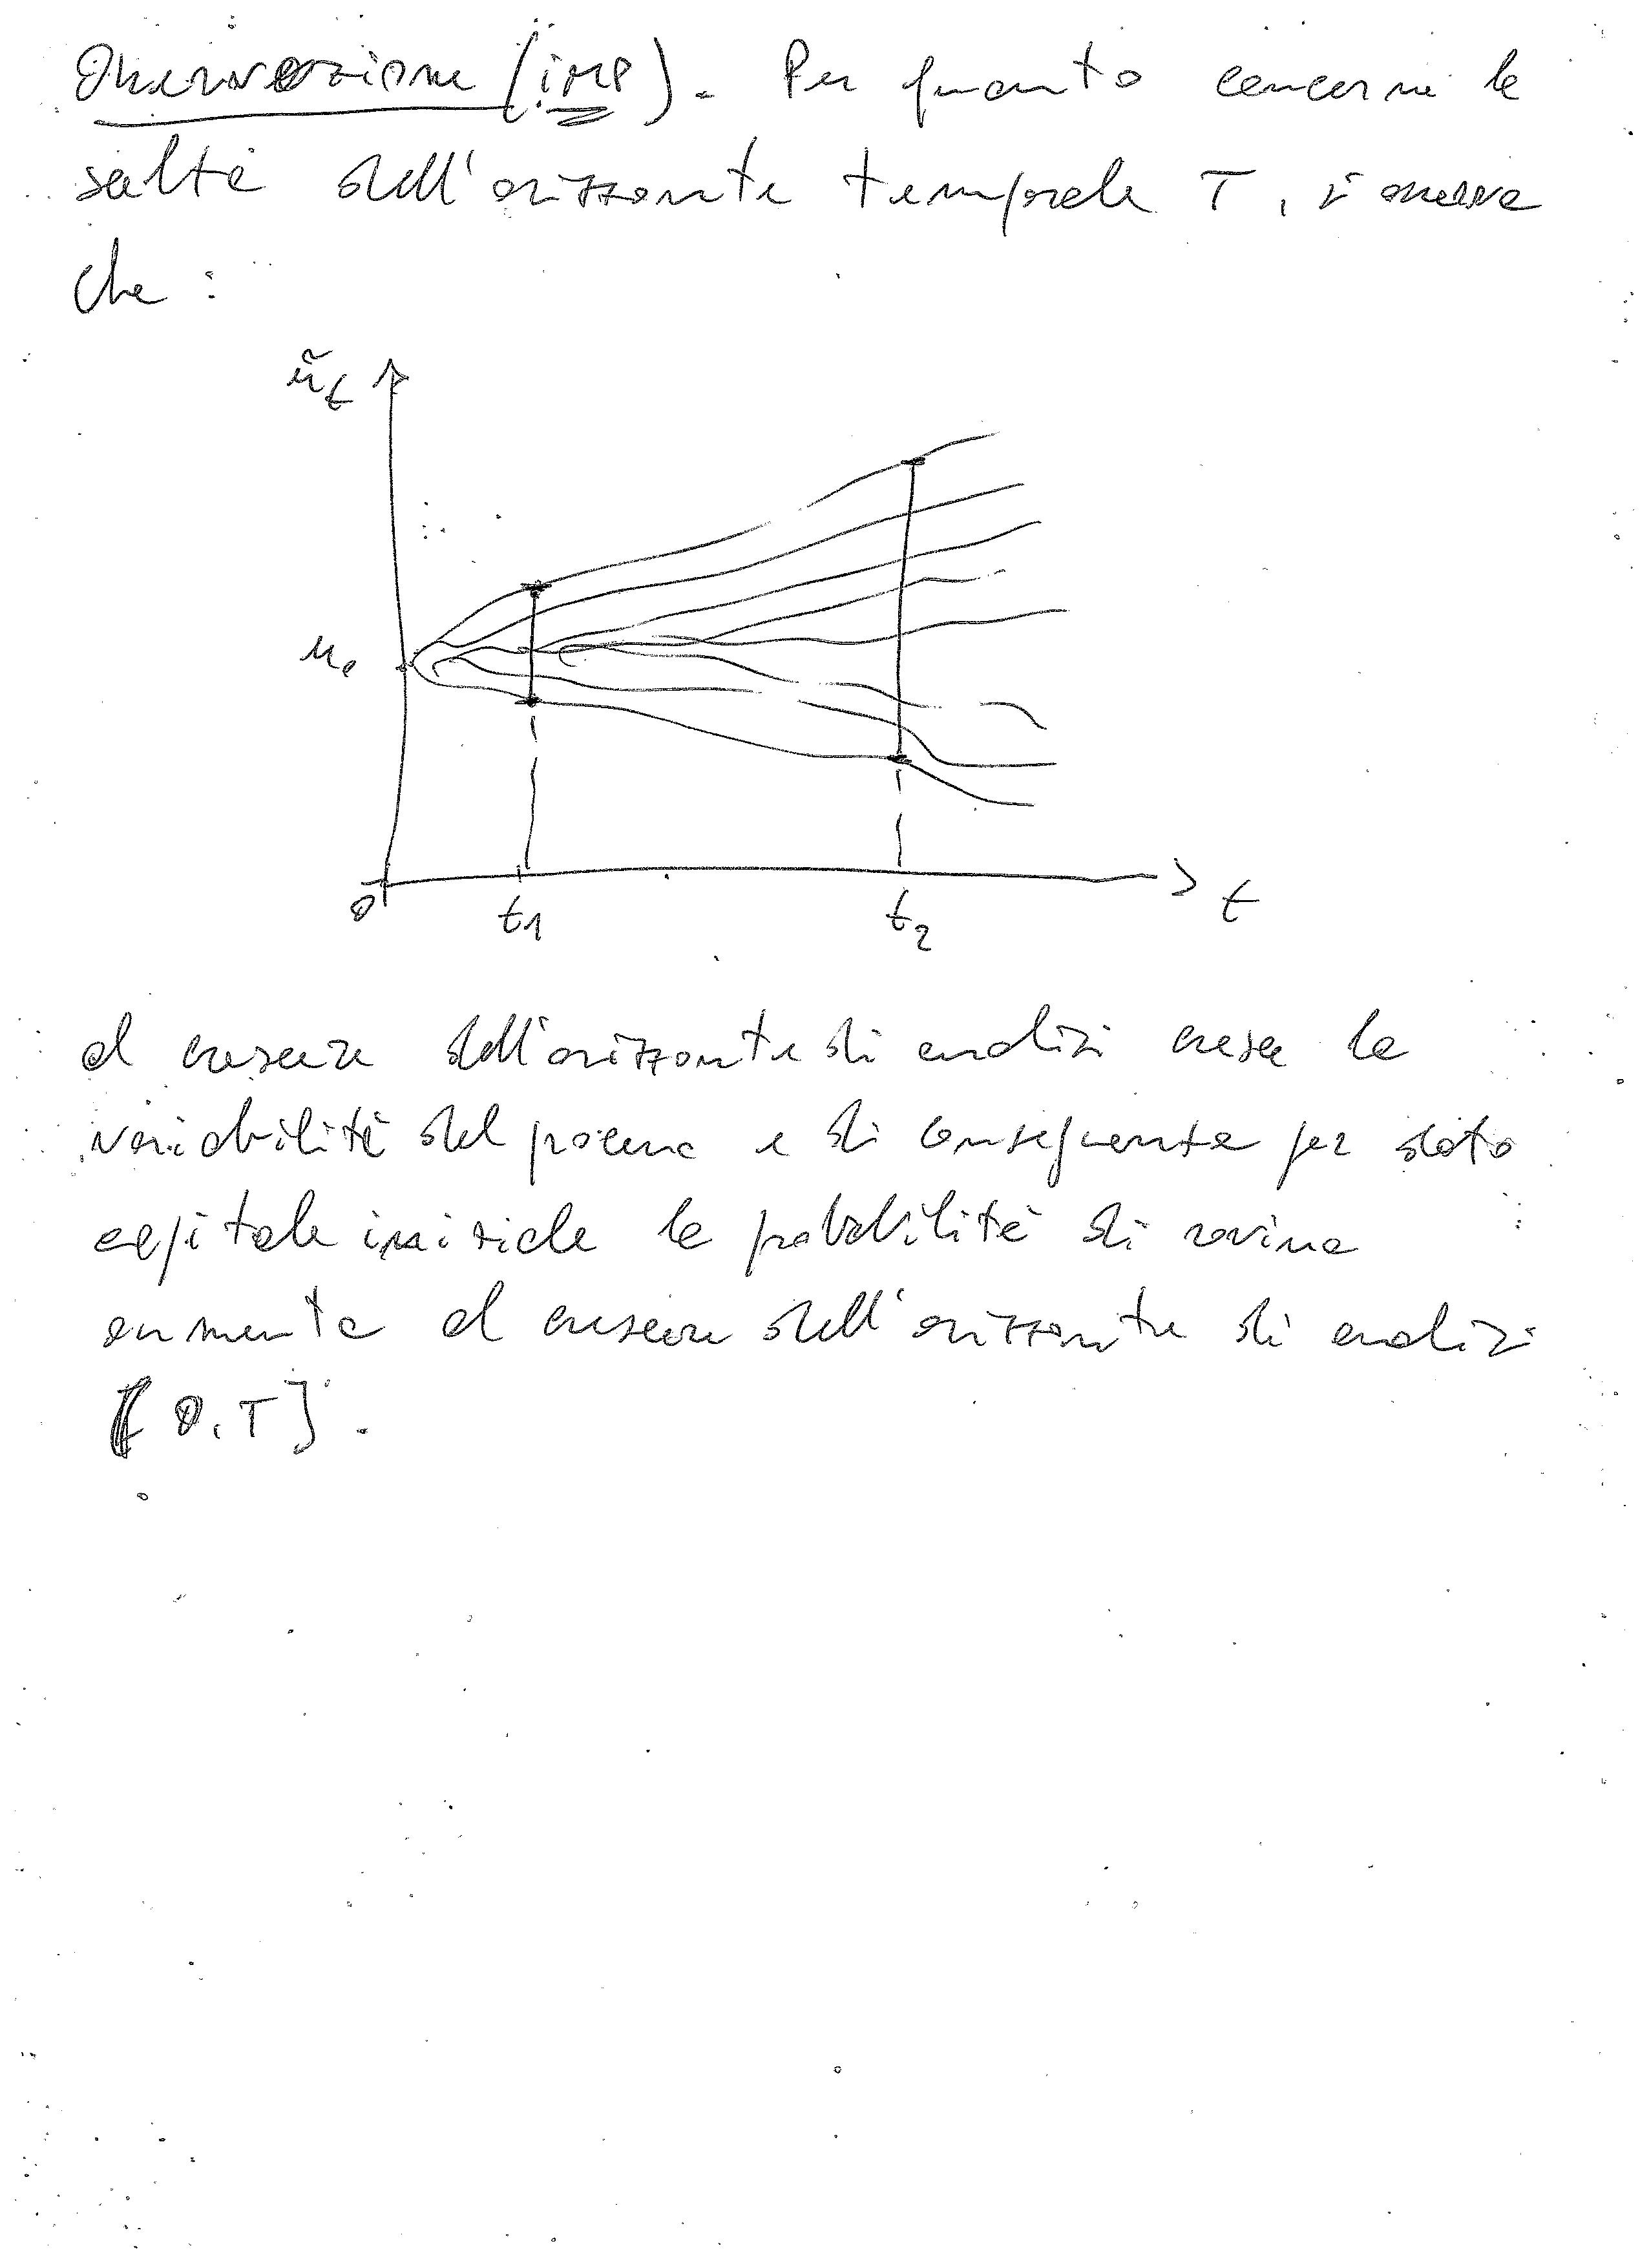 Osservazione (imp). Per quanto concerne la
scelta dell'orizzonte temporale T, si osserva
che :
ũt
u0
0
t1
t2
t
al crescere dell'orizzonte di analisi cresce la
variabilità del processo e di conseguenza per dato
capitale iniziale la probabilità di rovina
aumenta al crescere dell'orizzonte di analisi
[0,T].